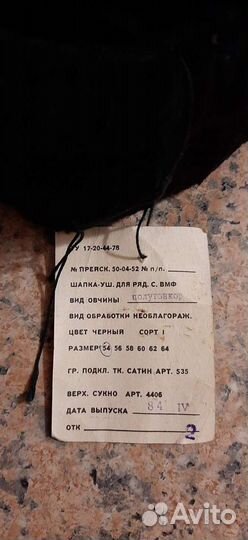 ТУ 17-20-44-76
№ ПРЕЙСК. 50-04-52 № п/п.
ШАПКА-УШ. ДЛЯ РЯД. С. ВМФ
ВИД ОВЧИНЫ полутонкор
ВИД ОБРАБОТКИ НЕОБЛАГОРАЖ.
ЦВЕТ ЧЕРНЫЙ СОРТ I
РАЗМЕР 54 56 58 60 62 64
ГР. ПОДКЛ. ТК. САТИН АРТ. 535
ВЕРХ. СУКНО АРТ. 4406
ДАТА ВЫПУСКА 84 IV
ОТК 2
Avito